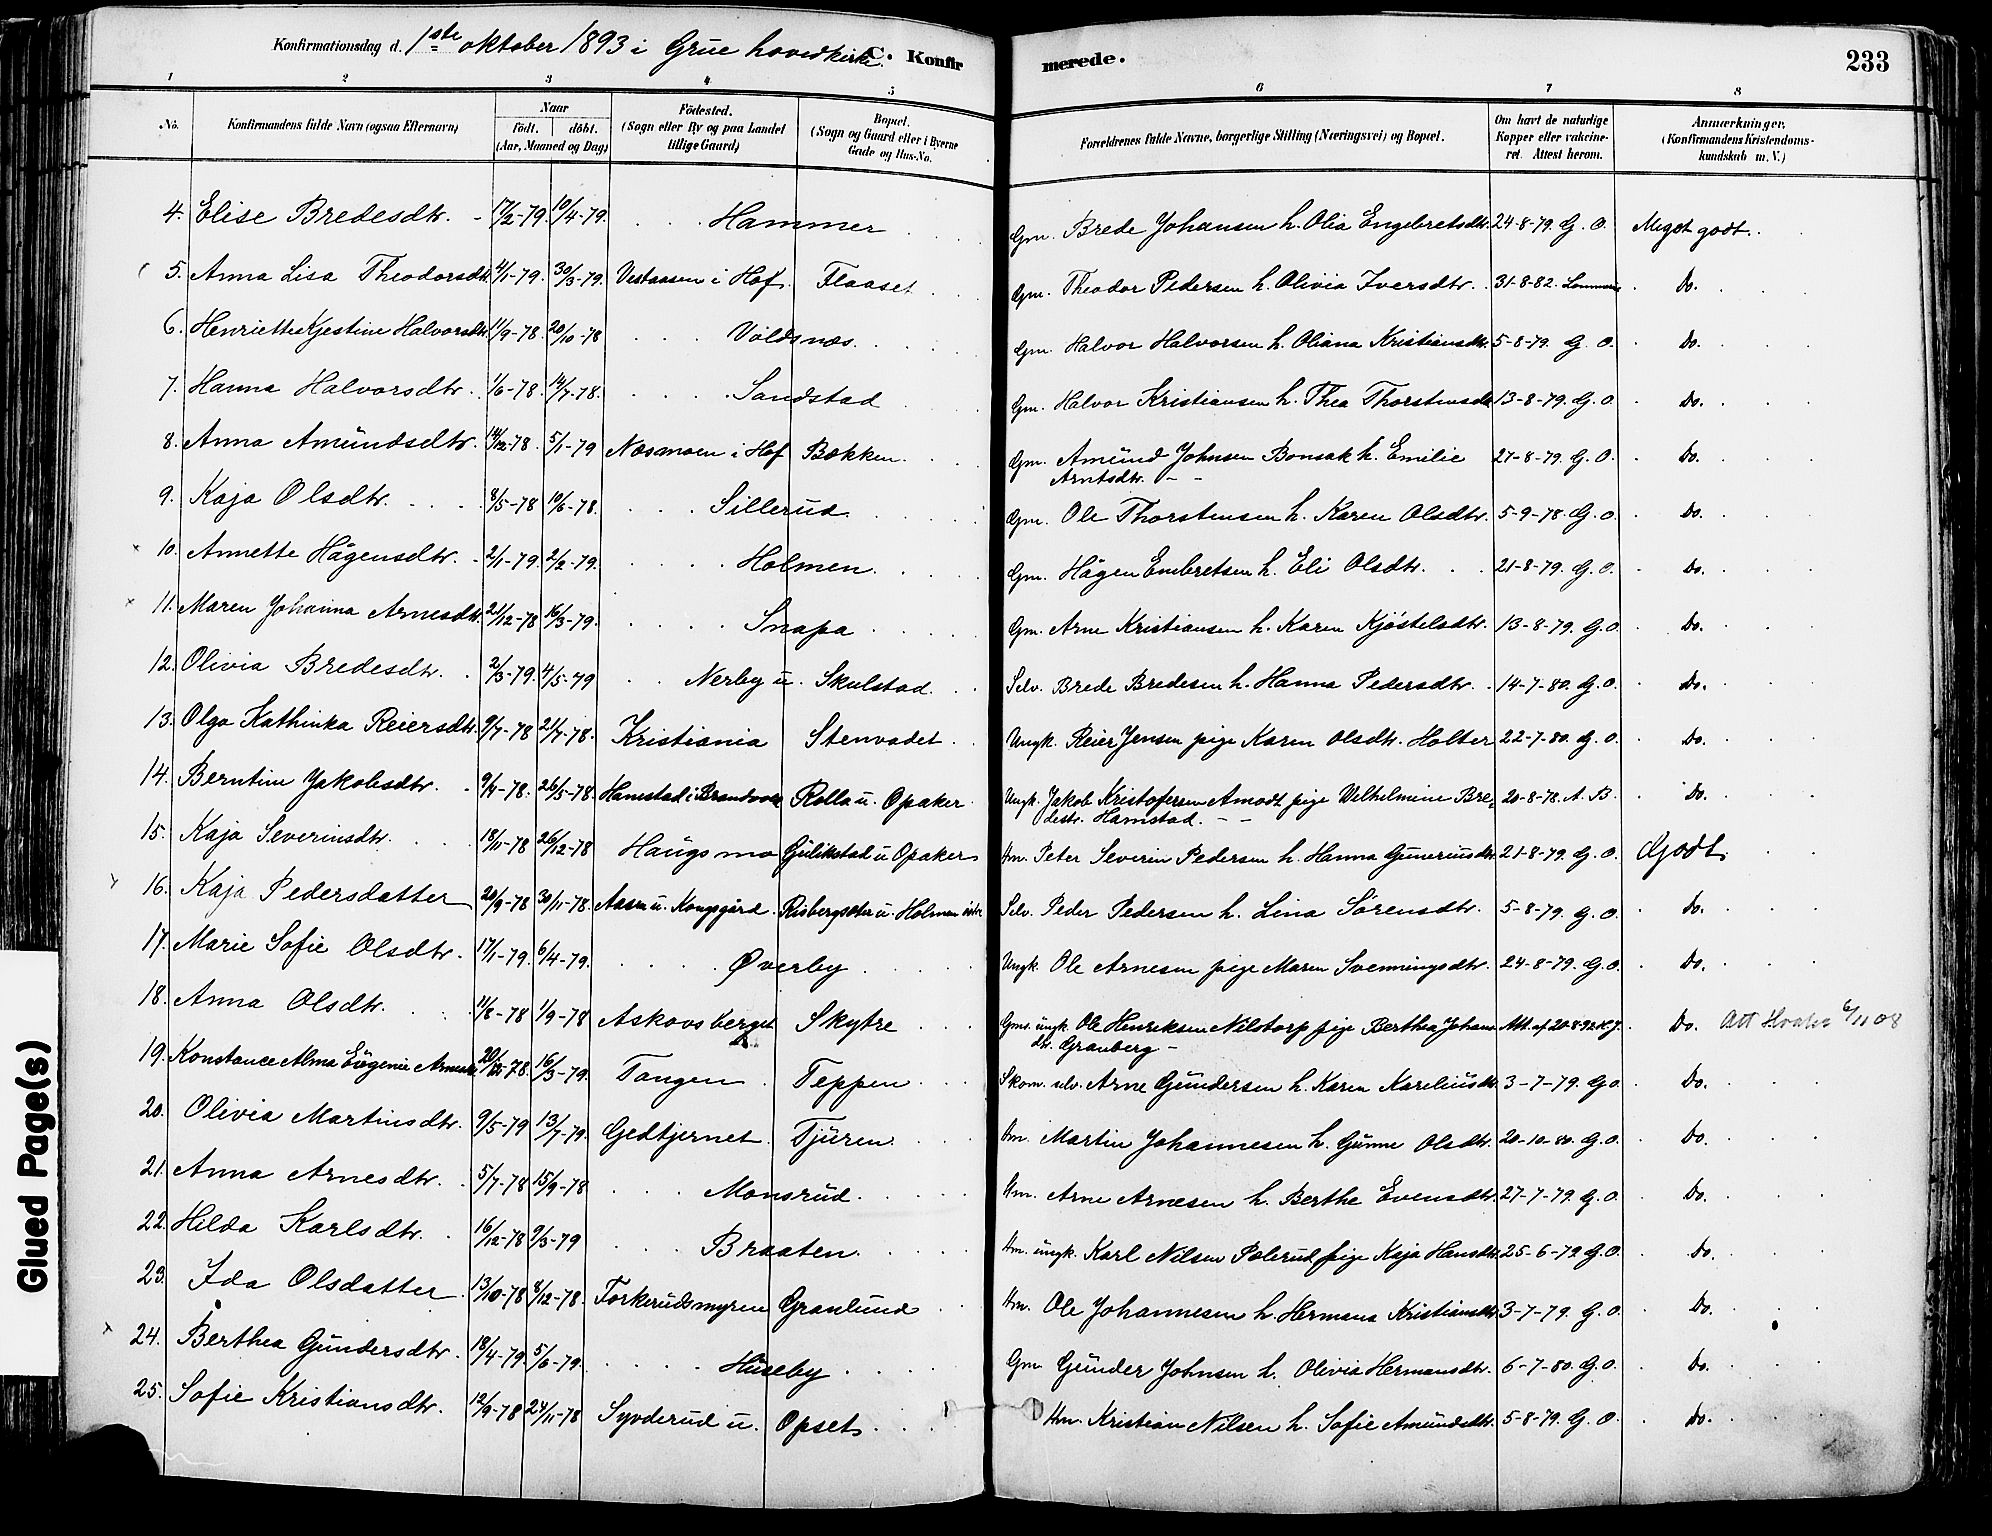 Konfirmationsdag d. 1ste oktober 1893 i Grue hovedkirke. C. Konfir merede. 233
1 2 3 4 5 6 7 8
No. Konfirmandens fulde Navn (ogsaa Efternavn) Naar födt. döbt. (Aar, Maaned og Dag) Födested. (Sogn eller By og paa Landet tillige Gaard) Bopæl. (Sogn og Gaard eller i Byerne Gade og Hus-No. Forældrenes fulde Navne, borgerlige Stilling (Næringsvei) og Bopæl. Om havt de naturlige Kopper eller vakcineret. Attest herom. Anmærkninger, (Konfirmandens Kristendomskundskab m. V.)
4. Elise Bredesdtr. 17/2-79. 10/4-79. Hammer Gm. Brede Johansen h. Olia Engebretsdtr. 24-8-79. G. O. Meget godt.
5. Anna Lisa Theodorsdtr. 4/1-79. 30/3-79. Vestaasen i Hof. Flaaset Gm. Theodor Pedersen h. Olivia Iversdtr. 31-8-82. Do.
6. Henriette Kjestine Halvorsdtr. 11/9-78. 20/10-78 Voldsnæs. Gm. Halvor Halvorsen h. Oliana Kristiansdtr. 5-8-79. G. O. Do.
7. Hanna Halvorsdtr. 1/6-78. 14/7-78. Sandstad Gm. Halvor Kristiansen h. Thea Thorstensdtr 13-8-79. G. O. Do.
8. Anna Amundsdtr. 14/12-78. 5/1-79 Næsmoen i Hof Bækken. Gm. Amund Johnsen Bonsak h. Emilie 27-8-79. G. O. Do.
Arntsdtr.
9. Kaja Olsdtr. 8/5-78 10/6-78. Sillerud. Gm. Ole Thorstensen h. Karen Olsdtr. 5-9-78. G. O. Do.
10. Annette Hågensdtr. 2/1-79. 2/2-79. Holmen. Gm. Hågen Embretsen h. Eli Olsdtr. 21-8-79. G. O. Do.
11. Maren Johanna Arnesdtr. 21/12-78 16/3-79. Snapa Gm. Arne Kristiansen h. Karen Kjöstelsdtr. 13-8-79. G. O. Do.
12. Olivia Bredesdtr. 2/3-79. 4/5-79 Nerby u. Skulstad. Selv. Brede Bredesen h. Hanna Pedersdtr. 14-7-80. G. O. Do.
13. Olga Kathinka Reiersdtr. 9/7-78 21/7-78. Kristiania Stenvadet. Ungk. Reier Jensen pige Karen Olsdtr. Holter 22-7-80. G. O. Do.
14. Berntine Jakobsdtr. 9/4-78. 26/5-78. Hamstad i Brandvold Rolla u. Opaker. Ungk. Jakob Kristofersen Amodt pige Wilhelmine Bre- 20-8-78. A. B. Do.
destr. Hamstad.
15. Kaja Severinsdtr. 18/11-78 26/12-78 Haugsmo Gulikstad u Opaker Hm. Peter Severin Pedersen h. Hanna Guneriusdtr 21-8-79. G. O. Godt.
16. Kaja Pedersdatter 20/9-78 30/11-78. Aasen u. Kongsgård. Risbergsæter u. Holmen Selv. Peder Pedersen h. Lina Sörensdtr. 5-8-79. G. O. Do.
17. Marie Sofie Olsdtr. 17/1-79. 6/4-79. Øverby Ungk. Ole Arnesen pige Maren Svenningsdtr. 24-8-79. G. O. Do.
18. Anna Olsdtr. 11/8-78 1/9-78 Askovsberget Skytre Gms. ungk. Ole Henriksen Nilstorp pige Berthea Johans Att. af 20-8-92 K. J. Do. Att 6/11 08
dtr. Granberg
19. Konstance Alma Eugenie Arnesdtr 20/12-78. 16/3-79. Tangen Teppen Skom. selv. Arne Gundersen h. Karen Kareliusdtr. 3-7-79. G. O. Do.
20. Olivia Martinsdtr. 9/5-79 13/7-79. Gedtjernet. Tjuren. Hm. Martin Johannesen h. Gunne Olsdtr. 20-10-80. G. O. Do.
21. Anna Arnesdtr. 5/7-78 15/9-78 Monsrud. Hm. Arne Arnesen h. Berthe Evensdtr. 27-7-79. G. O. Do.
22. Hilda Karlsdtr. 16/12-78 9/3-79 Braaten. Hm. ungk. Karl Nilsen Polerud pige Kaja Hansdtr. 25-6-79. G. O. Do.
23. Ida Olsdatter 13/10-78 8/12-78. Torkerudsmyren Granlund Hm. Ole Johannesen h. Hermana Kristiansdtr. 3-7-79. G. O. Do.
24. Berthea Gundersdtr. 18/4-79. 5/6-79. Huseby Gm Gunder Johnsen h. Olivia Hermansdtr. 6-7-80. G. O. Do.
25. Sofie Kristiansdtr. 12/9-78 24/11-78 Syvderud u. Opset. Hm. Kristian Nilsen h. Sofie Amundsdtr. 5-8-79. G. O. Do.
Glued Page(s)